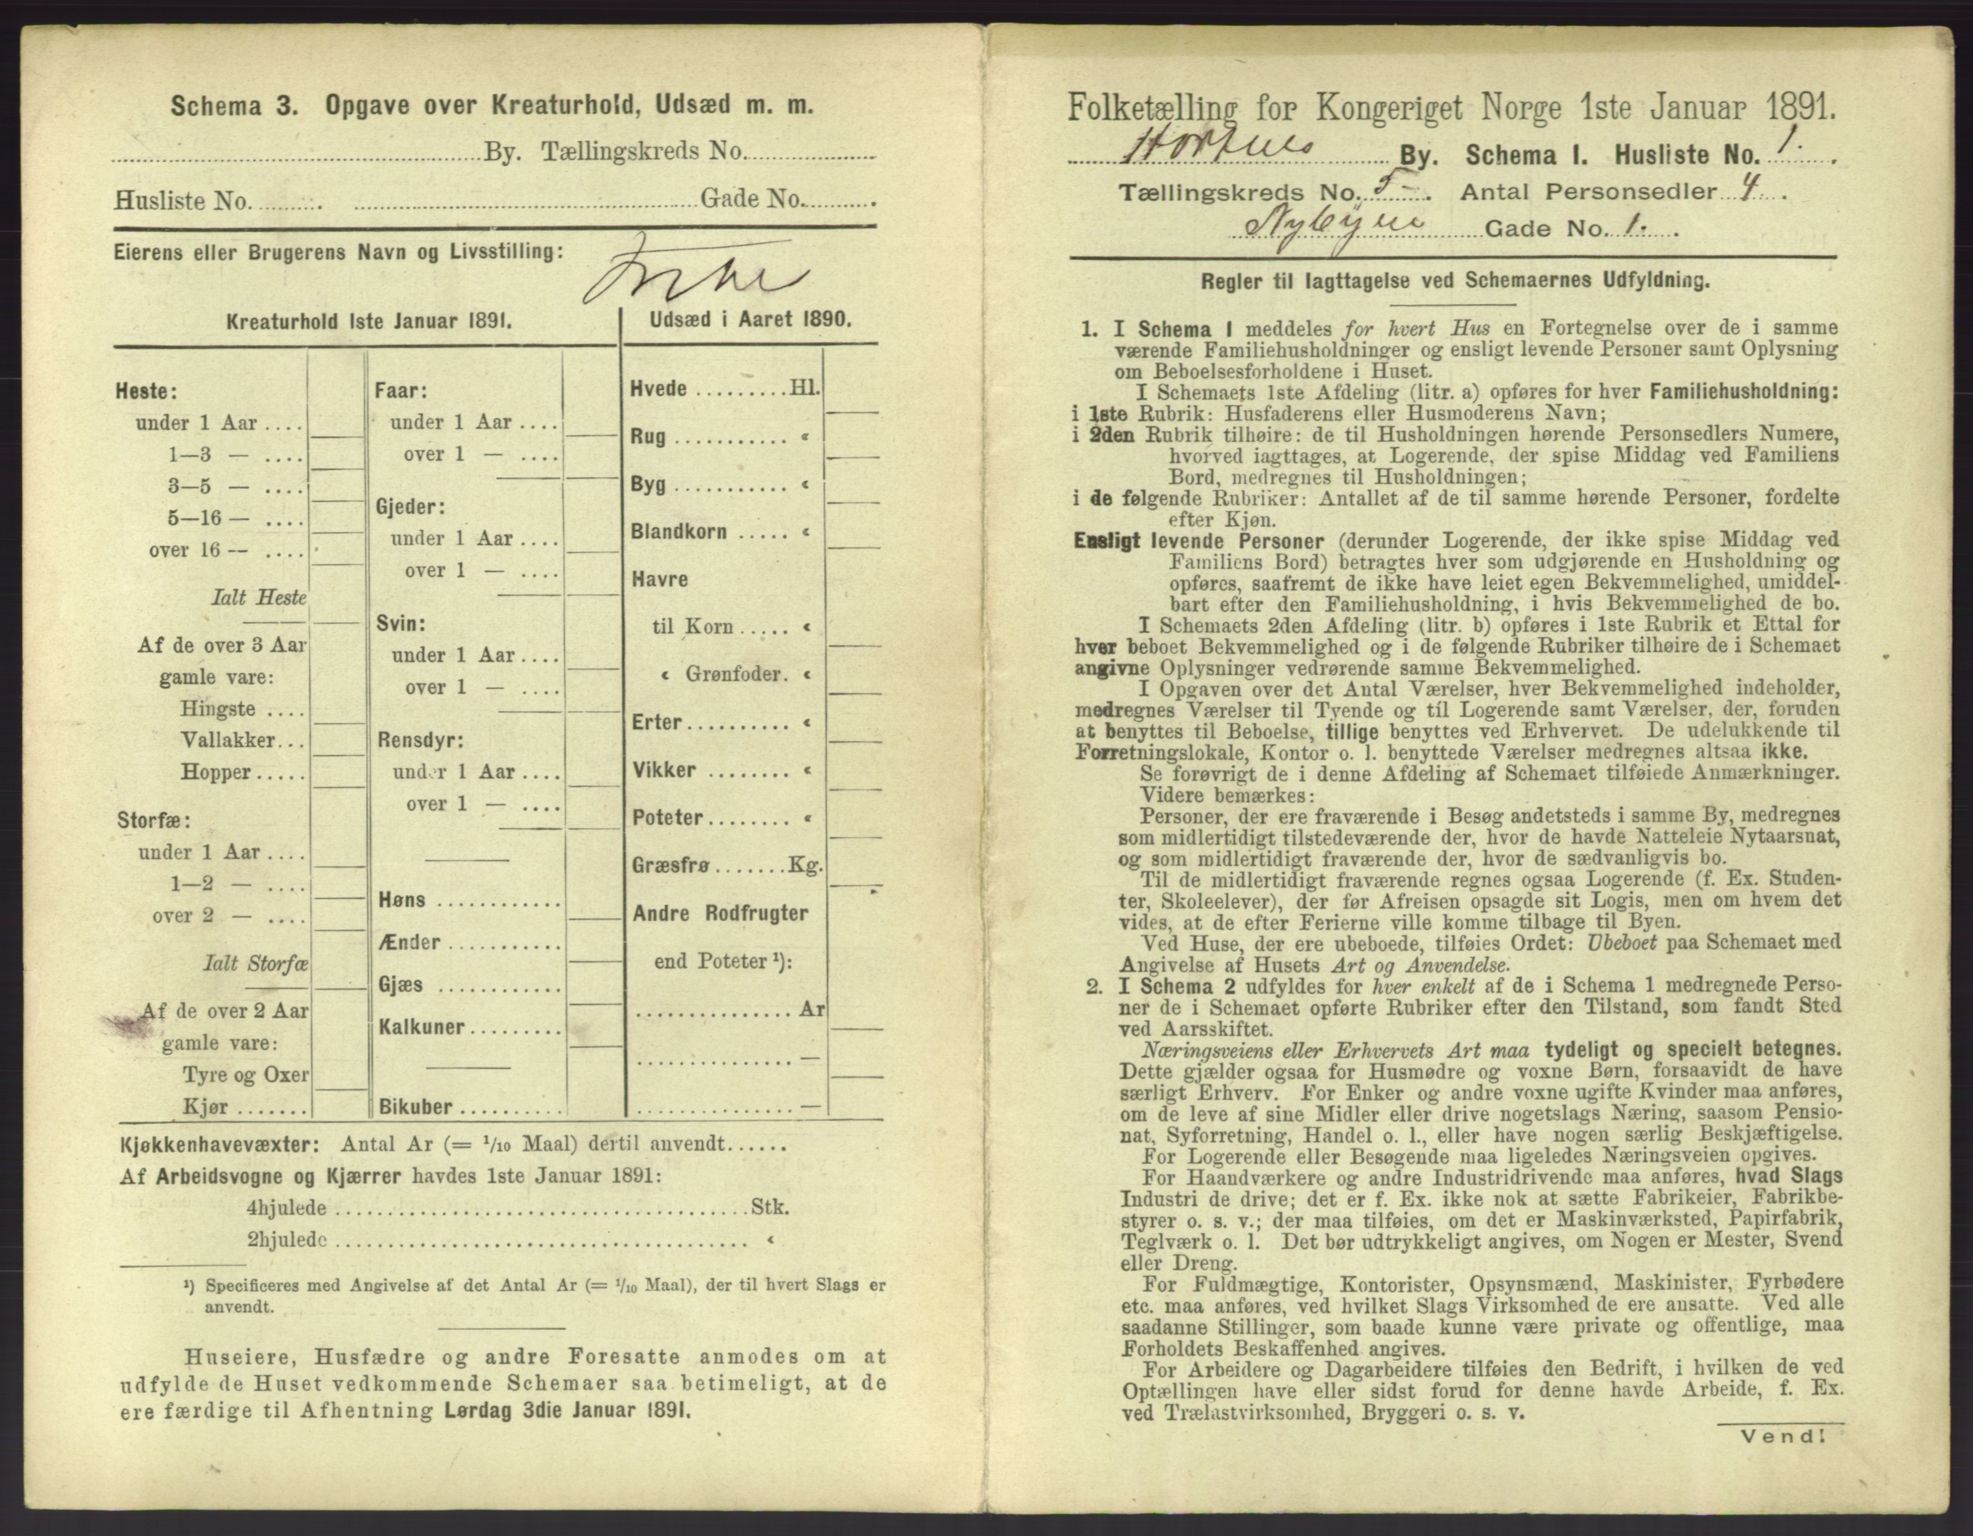 Schema 3. Opgave over Kreaturhold, Udsæd m. m.
By. Tællingskreds No.
Husliste No. Gade No.
Eierens eller Brugerens Navn og Livsstilling:
Kreaturhold 1ste Januar 1891.
Heste:
under 1 Aar ....
1—3 — ....
3—5 — ....
5—16 — ....
over 16 — ....
Ialt Heste
Af de over 3 Aar
gamle vare:
Hingste ....
Vallakker...
Hopper.....
Storfæ:
under 1 Aar ....
1—2 — ....
over 2 — ....
Ialt Storfæ
Af de over 2 Aar
gamle vare:
Tyre og Oxer
Kjør.......
Faar:
under 1 Aar ....
over 1 — ....
Gjeder:
under 1 Aar ....
over 1 — ....
Svin:
under 1 Aar ....
over 1 — ....
Rensdyr:
under 1 Aar ....
over 1 — ....
Høns ............
Ænder ...........
Gjæs ............
Kalkuner.........
Bikuber..........
Udsæd i Aaret 1890.
Hvede .........Hl.
Rug ........... «
Byg ........... «
Blandkorn ..... «
Havre
til Korn..... «
« Grønfoder. «
Erter......... «
Vikker ........ «
Poteter........ «
Græsfrø.......Kg.
Andre Rodfrugter
end Poteter ¹):
............... Ar
............... —
............... —
Kjøkkenhavevæxter: Antal Ar (= 1/10 Maal) dertil anvendt......
Af Arbeidsvogne og Kjærrer havdes 1ste Januar 1891:
4hjulede ....................................Stk.
2hjulede .................................... «
¹) Specificeres med Angivelse af det Antal Ar (= 1/10 Maal), der til hvert Slags er
anvendt.
Huseiere, Husfædre og andre Foresatte anmodes om at
udfylde de Huset vedkommende Schemaer saa betimeligt, at de
ere færdige til Afhentning Lørdag 3die Januar 1891.
Folketælling for Kongeriget Norge 1ste Januar 1891.
Hortens By. Schema I. Husliste No. 1.
Tællingskreds No. 5 Antal Personsedler 4
Nybyen Gade No. 1.
Regler til Iagttagelse ved Schemaernes Udfyldning.
1. I Schema 1 meddeles for hvert Hus en Fortegnelse over de i samme
værende Familiehusholdninger og ensligt levende Personer samt Oplysning
om Beboelsesforholdene i Huset.
I Schemaets 1ste Afdeling (litr. a) opføres for hver Familiehusholdning:
i 1ste Rubrik: Husfaderens eller Husmoderens Navn;
i 2den Rubrik tilhøire: de til Husholdningen hørende Personsedlers Numere,
hvorved iagttages, at Logerende, der spise Middag ved Familiens
Bord, medregnes til Husholdningen;
i de følgende Rubriker: Antallet af de til samme hørende Personer, fordelte
efter Kjøn.
Ensligt levende Personer (derunder Logerende, der ikke spise Middag ved
Familiens Bord) betragtes hver som udgjørende en Husholdning og
opføres, saafremt de ikke have leiet egen Bekvemmelighed, umiddel-
bart efter den Familiehusholdning, i hvis Bekvemmelighed de bo.
I Schemaets 2den Afdeling (litr. b) opføres i 1ste Rubrik et Ettal for
hver beboet Bekvemmelighed og i de følgende Rubriker tilhøire de i Schemaet
angivne Oplysninger vedrørende samme Bekvemmelighed.
I Opgaven over det Antal Værelser, hver Bekvemmelighed indeholder,
medregnes Værelser til Tyende og til Logerende samt Værelser, der, foruden
at benyttes til Beboelse, tillige benyttes ved Erhvervet. De udelukkende til
Forretningslokale, Kontor o. l. benyttede Værelser medregnes altsaa ikke.
Se forøvrigt de i denne Afdeling af Schemaet tilføiede Anmærkninger.
Videre bemærkes:
Personer, der ere fraværende i Besøg andetsteds i samme By, medregnes
som midlertidigt tilstedeværende der, hvor de havde Natteleie Nytaarsnat,
og som midlertidigt fraværende der, hvor de sædvanligvis bo.
Til de midlertidigt fraværende regnes ogsaa Logerende (f. Ex. Studen-
ter, Skoleelever), der før Afreisen opsagde sit Logis, men om hvem det
vides, at de efter Ferierne ville komme tilbage til Byen.
Ved Huse, der ere ubeboede, tilføies Ordet: Ubeboet paa Schemaet med
Angivelse af Husets Art og Anvendelse.
2. I Schema 2 udfyldes for hver enkelt af de i Schema 1 medregnede Perso-
ner de i Schemaet opførte Rubriker efter den Tilstand, som fandt Sted
ved Aarsskiftet.
Næringsveiens eller Erhvervets Art maa tydeligt og specielt betegnes.
Dette gjælder ogsaa for Husmødre og voxne Børn, forsaavidt de have
særligt Erhverv. For Enker og andre voxne ugifte Kvinder maa anføres,
om de leve af sine Midler eller drive nogetslags Næring, saasom Pensio-
nat, Syforretning, Handel o. l., eller have nogen særlig Beskjæftigelse.
For Logerende eller Besøgende maa ligeledes Næringsveien opgives.
For Haandværkere og andre Industridrivende maa anføres, hvad Slags
Industri de drive; det er f. Ex. ikke nok at sætte Fabrikeier, Fabrikbe-
styrer o. s. v.; der maa tilføies, om det er Maskinværksted, Papirfabrik,
Teglværk o. l. Det bør udtrykkeligt angives, om Nogen er Mester, Svend
eller Dreng.
For Fuldmægtige, Kontorister, Opsynsmænd, Maskinister, Fyrbødere
etc. maa anføres, ved hvilket Slags Virksomhed de ere ansatte. Ved alle
saadanne Stillinger, som baade kunne være private og offentlige, maa
Forholdets Beskaffenhed angives.
For Arbeidere og Dagarbeidere tilføies den Bedrift, i hvilken de ved
Optællingen have eller sidst forud for denne havde Arbeide, f. Ex.
ved Trælastvirksomhed, Bryggeri o. s. v.
Vend!